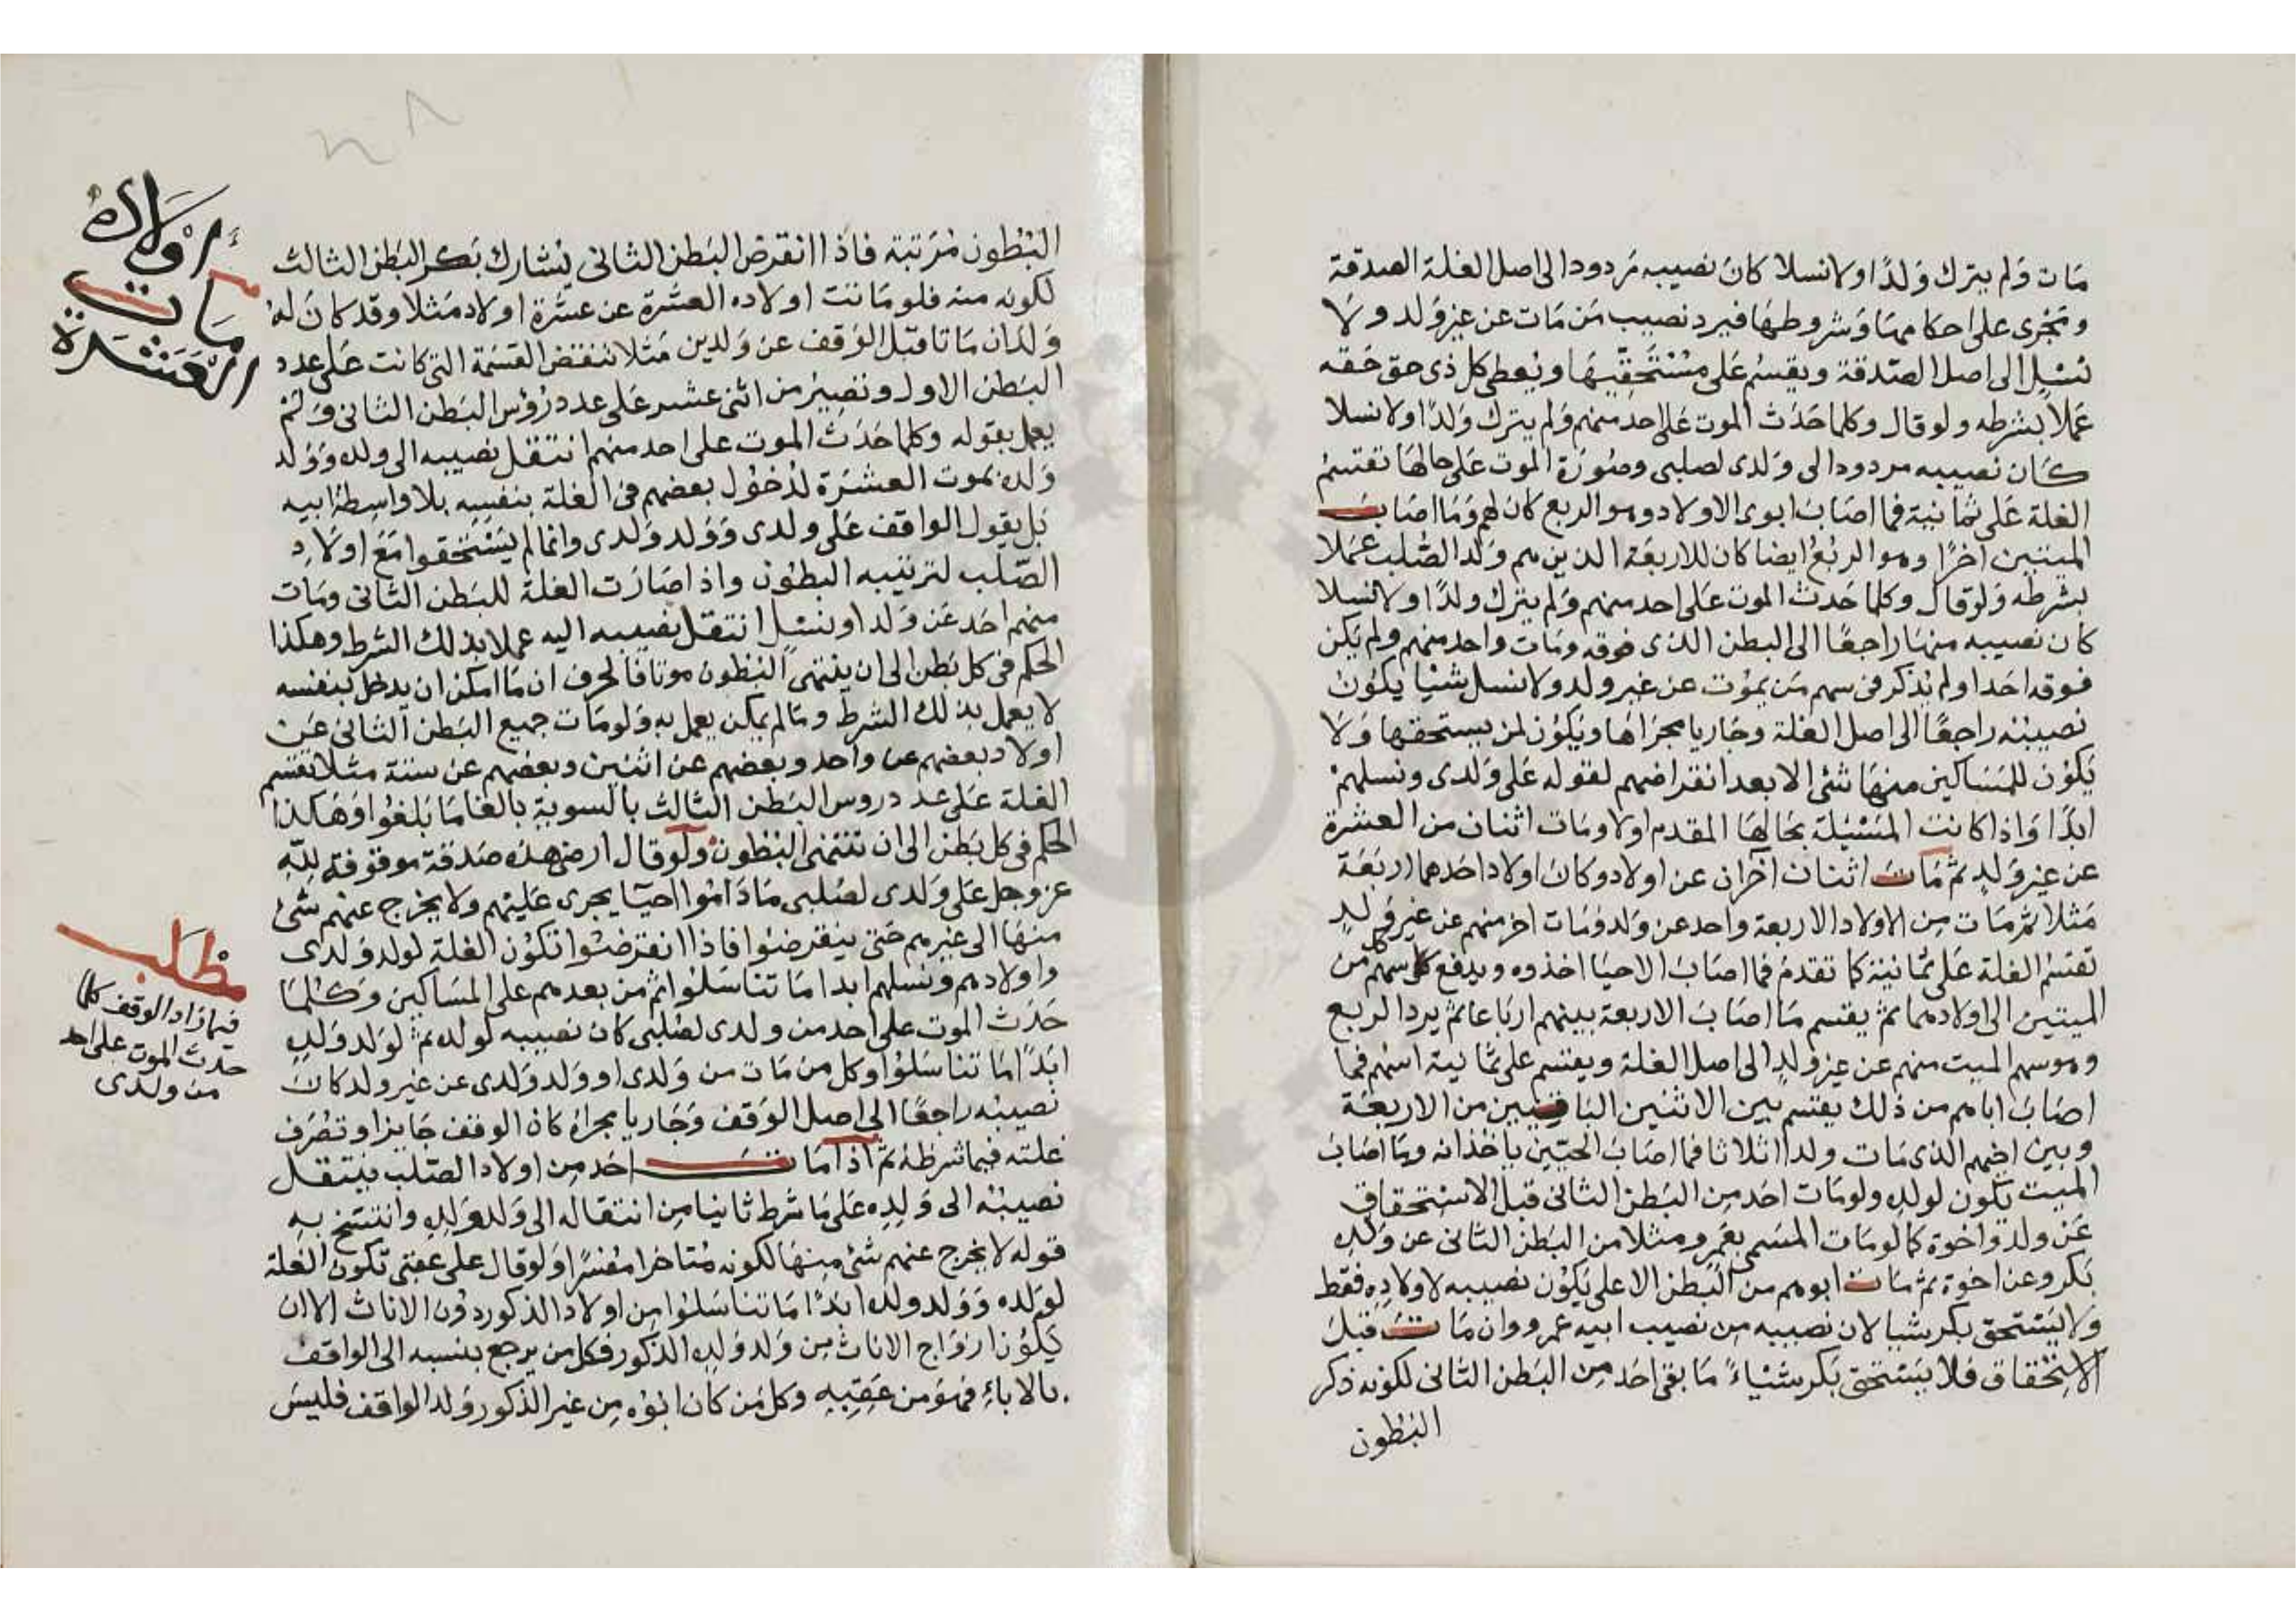 مَات وَلم يترك وَلدًا ولا نسلا كانَ نصيبه مَردودا الى اصل الغلة الصدقة
وتجْرى على احكامهَا وَشروطهَا فيرد نصيب مَن مَات عن غير وَلد ولا
نسْلٍ الى اصل الصّدقة ويقسمُ عَلى مسْتحقّيهَا ويُعطى كل ذى حق حَقه
عَملًا بشرطه ولو قال وكلما حَدَث الموت عَلى احد منهم وَلم يترك وَلدًا ولا نسلا
كَان نصيبه مردودا الى وَلدى لصلبى وصُورَة الموت عَلى حالهَا تقتسمُ
الغلة عَلى ثمانية فما اصَابَ ابوى الاولاد وهو الربع كانَ لهم وَمَا اصَابَ
الميتين اخرًا وهو الربعُ ايضا كان للاربعَة الذين هم وَلد الصُّلب عَملا
بشرطه وَلو قال وكلما حَدث الموت عَلى احد منهم وَلم يترك ولدًا ولا نسلا
كان نصيبه منهَا راجعًا الى البطن الذى فوقه ومَات واحد منهم ولم يَكن
فوقه احَد اولم يُذكر فى سهم مَن يموُت عن غير ولد ولا نسل شيْئا يكوُن
نصيبُه راجعًا الى اصل الغلة وجَاريا مجرَاهَا ويَكوُن لمن يستحقها وَلا
يَكوُن للمَسَاكين منهَا شئ الا بعد انقراضهم لقوله عَلى وَلدى ونسلهمْ
ابدًا وَاذا كانت المَسْئلة بحَالهَا المقدم اولا ومَات اثنان من العشرة
عن غير وَلدٍ ثم مَات اثنان آخران عن اولاد وكانَ اولاد احَدهما اربَعَة
مَثلًا ثم مَات مِن الاولاد الاربعة واحد عن وَلد ومَات اخر منهم عن غير وَلدٍ
تقتسمُ الغلة عَلى ثمانية كما تقدمُ فما اصَابَ الاحيَا اخذوه ويدفع كل سهم من
الميتين الى اولادهما ثم يقتسم مَا اصَابَ الاربعة بينهم اربَاعا ثم يرد الربع
وهو سهم الميت منهم عن غير وَلدٍ الى اصل الغلة ويقتسم على ثمانية اسْهم فما
اصَابَ اباهم من ذلك يقتسم بين الاثنين البَاقيين من الاربعَة
وبين اخيهم الذى مَات ولدا اثلاثا فما اصَابَ الحيّين ياخذانه ومَا اصَابَ
الميت يَكون لولدِه ولومَات احَد مِن البَطن الثانى قبل الاستحقاق
عَن ولد واخوة كما لو مَات المسَمى بعَمرو مثلا من البَطن الثانى عن وَلدِه
بَكر وعن اخوة ثم مَات ابوهم من البَطن الاعلى يَكوُن نصيبه لاولادِه فقط
ولا يَسْتحق بكر شيا لان نصيبه مِن نصيب ابيه عمرو وان مَات قبل
الاسْتحقاق فلا يسْتحق بَكر شيْاءً مَا بقى احَد مِن البَطن الثانى لكونه ذكر
البُطون
البُطون مُرَتبة فاذا انقرضَ البَطن الثانى يُشارك بَكر البَطن الثالث
لكونه منه فلو مَاتت اولاده العشَرة عن عشَرة اولاد مَثلا وقد كانَ لهُ
وَلدَان مَاتا قبْل الوَقف عن وَلدين مَثلا تنقض القسَمة التى كانت عَلى عدد
البَطن الاول وتصيرُ من اثنى عشر عَلى عدد رؤس البَطن الثانى وَلمْ
يعمل بقوله وكلما حَدَث الموت على احد منهم انتقل نصيبه الى ولده وَوَلد
وَلده بموت العشَرة لدُخوُل بعضهم فى الغلة بنفسِه بلا واسِطة ابيه
بَل بقول الواقف عَلى ولدى وَوَلد وَلدى وانما لم يَسْتحقوا مَعَ اولاد
الصّلب لترتيبه البطوُن واذا صَارَت الغلة للبَطن الثانى ومَات
منهم احَد عَن وَلد او نسْلٍ انتقل نصيبه اليه عملا بذلك الشرط وهكذا
الحكم فى كل بَطن الى ان ينتهى البُطون موتا فالحرف ان مَا امكن ان يدخل بنفسه
لا يعمل بذلك الشرط ومَا لم يمكن يعمل به وَلو مَات جميع البَطن الثانى عَن
اولاد بعضهم عن واحد وبعضهم عن اثنين وبعضهم عن ستة مثلا يقسم
الغلة عَلى عدد روس البَطن الثالث بالسوية بالغا مَا بَلغوا وَهَكذا
الحكم فى كل بَطن الى ان تنتهى البُطون وَلو قال ارضى هذه صَدقة موقوفة لله
عز وجل عَلى وَلدى لصُلبى مَا دَاموا احيَا يجرى عَليْهم ولا يخرج عنهم شئ
منهَا الى غيرهم حَتى ينقرضوُا فاذا انقرضوُا تكوُن الغلة لولد وَلدى
واولادهم ونسلهم ابدا مَا تناسَلوُا ثم من بعدهم على المسَاكين وَكلمَا
حَدَث الموت على احد من ولدى لصُلبى كان نصيبه لولده ثم لوَلد وَلدِه
ابَدًا مَا تنَاسَلوُا وكل من مَات من وَلدى او وَلد وَلدى عن غير ولد كانَ
نصيبُه راجعًا الى اصل الوَقف وَجَاريا مجراهُ كان الوقف جَايزا وتصُرَف
غلته فيما شرَطهُ ثم اذا مَات احَد مِن اولاد الصّلب ينتقل
نصيبُه الى وَلدِه عَلى مَا شَرط ثانيا مِن انتقاله الى وَلد وَلدِه وانتسَخ بهِ
قوله لا يخرج عنهم شئ منهَا لكونه مُتاخرا مفسّرا وَلو قال على عقبى تكون الغلة
لوَلده وَوَلد ولده ابَدًا مَا تناسَلوُا مِن اولاد الذكور دوُن الاناث الا ان
يَكوُن ازوَاج الاناث مِن وَلد وَلدِه الذكور فكل من يرجع بنسبه الى الواقف
بالاباءِ فهوَ من عَقِبِه وكل مَن كانَ ابوُه مِن غير الذكور وَلد الواقف فليسَ
أوْلادُهُ
مَات
العَشَرة
مَطلَب
فيما زاد الواقف كلما
حَدث الموت على احد
من ولدى